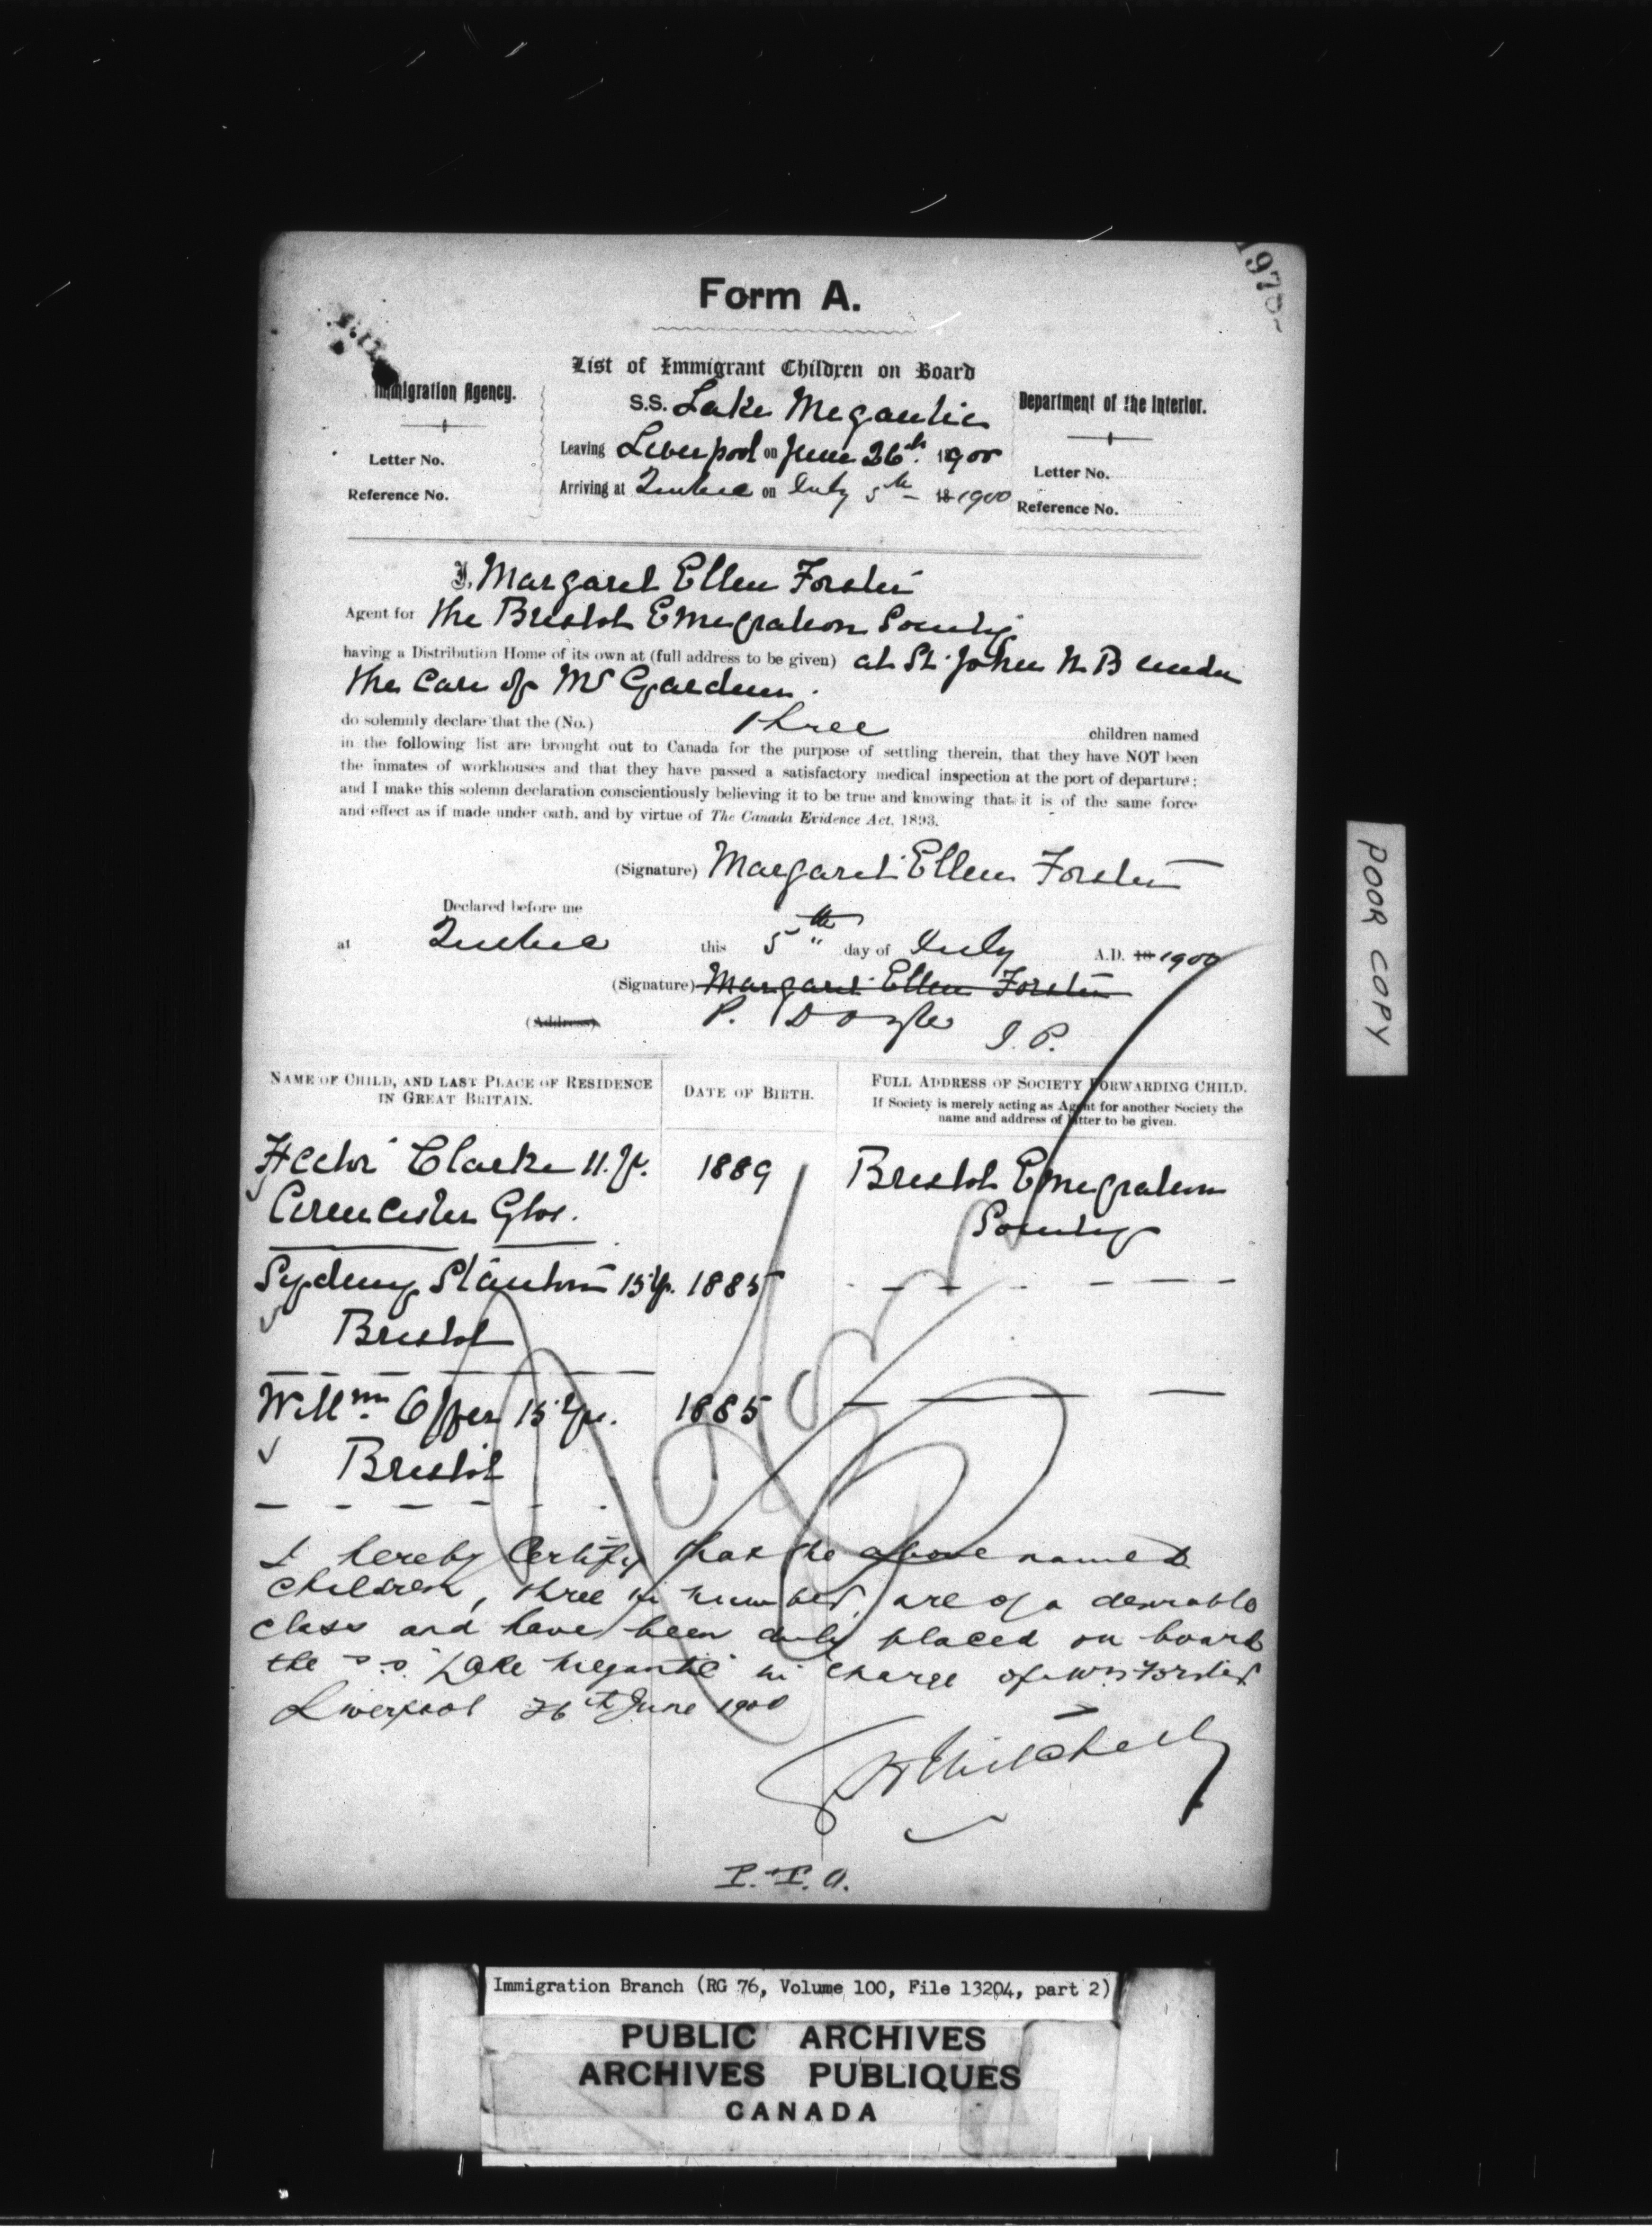 Form A.
List of Immigrant Children on Board
S.S. Lake Megantic
Leaving Liverpool on June 26th. 1900
Arriving at Quebec on July 5th 18 1900
Immigration Agency.
Letter No.
Reference No.
Department of the Interior.
Letter No.
Reference No.
I, Margaret Ellen Forster
Agent for the Bristol Emigration Society
having a Distribution Home of its own at (full address to be given) at St. John N B under
the care of Mr Gardner.
do solemnly declare that the (No.) three children named
in the following list are brought out to Canada for the purpose of settling therein, that they have NOT been
the inmates of workhouses and that they have passed a satisfactory medical inspection at the port of departure;
and I make this solemn declaration conscientiously believing it to be true and knowing that it is of the same force
and effect as if made under oath, and by virtue of The Canada Evidence Act, 1893.
(Signature) Margaret Ellen Forster
Declared before me
at Quebec this 5th day of July A.D. 18 1900
(Signature) Margaret Ellen Forster
(Address) P. Doyle J.P.
NAME OF CHILD, AND LAST PLACE OF RESIDENCE
IN GREAT BRITAIN.
DATE OF BIRTH.
FULL ADDRESS OF SOCIETY FORWARDING CHILD.
If Society is merely acting as Agent for another Society the
name and address of latter to be given.
Hector Clarke 11. yr. 1889 Bristol Emigration
Cirencester Glos. Society
Sydney Stanton 15 yr. 1885
Bristol
Willm. Offer 15 yr. 1885
Bristol
I hereby certify that the above named
children, three in number, are of a desirable
class and have been duly placed on board
the s.s. "Lake Megantic" in charge of Mrs Forster
Liverpool 26th June 1900
Mitchell
P.T.O.
POOR COPY
Immigration Branch (RG 76, Volume 100, File 13204, part 2)
PUBLIC ARCHIVES
ARCHIVES PUBLIQUES
CANADA